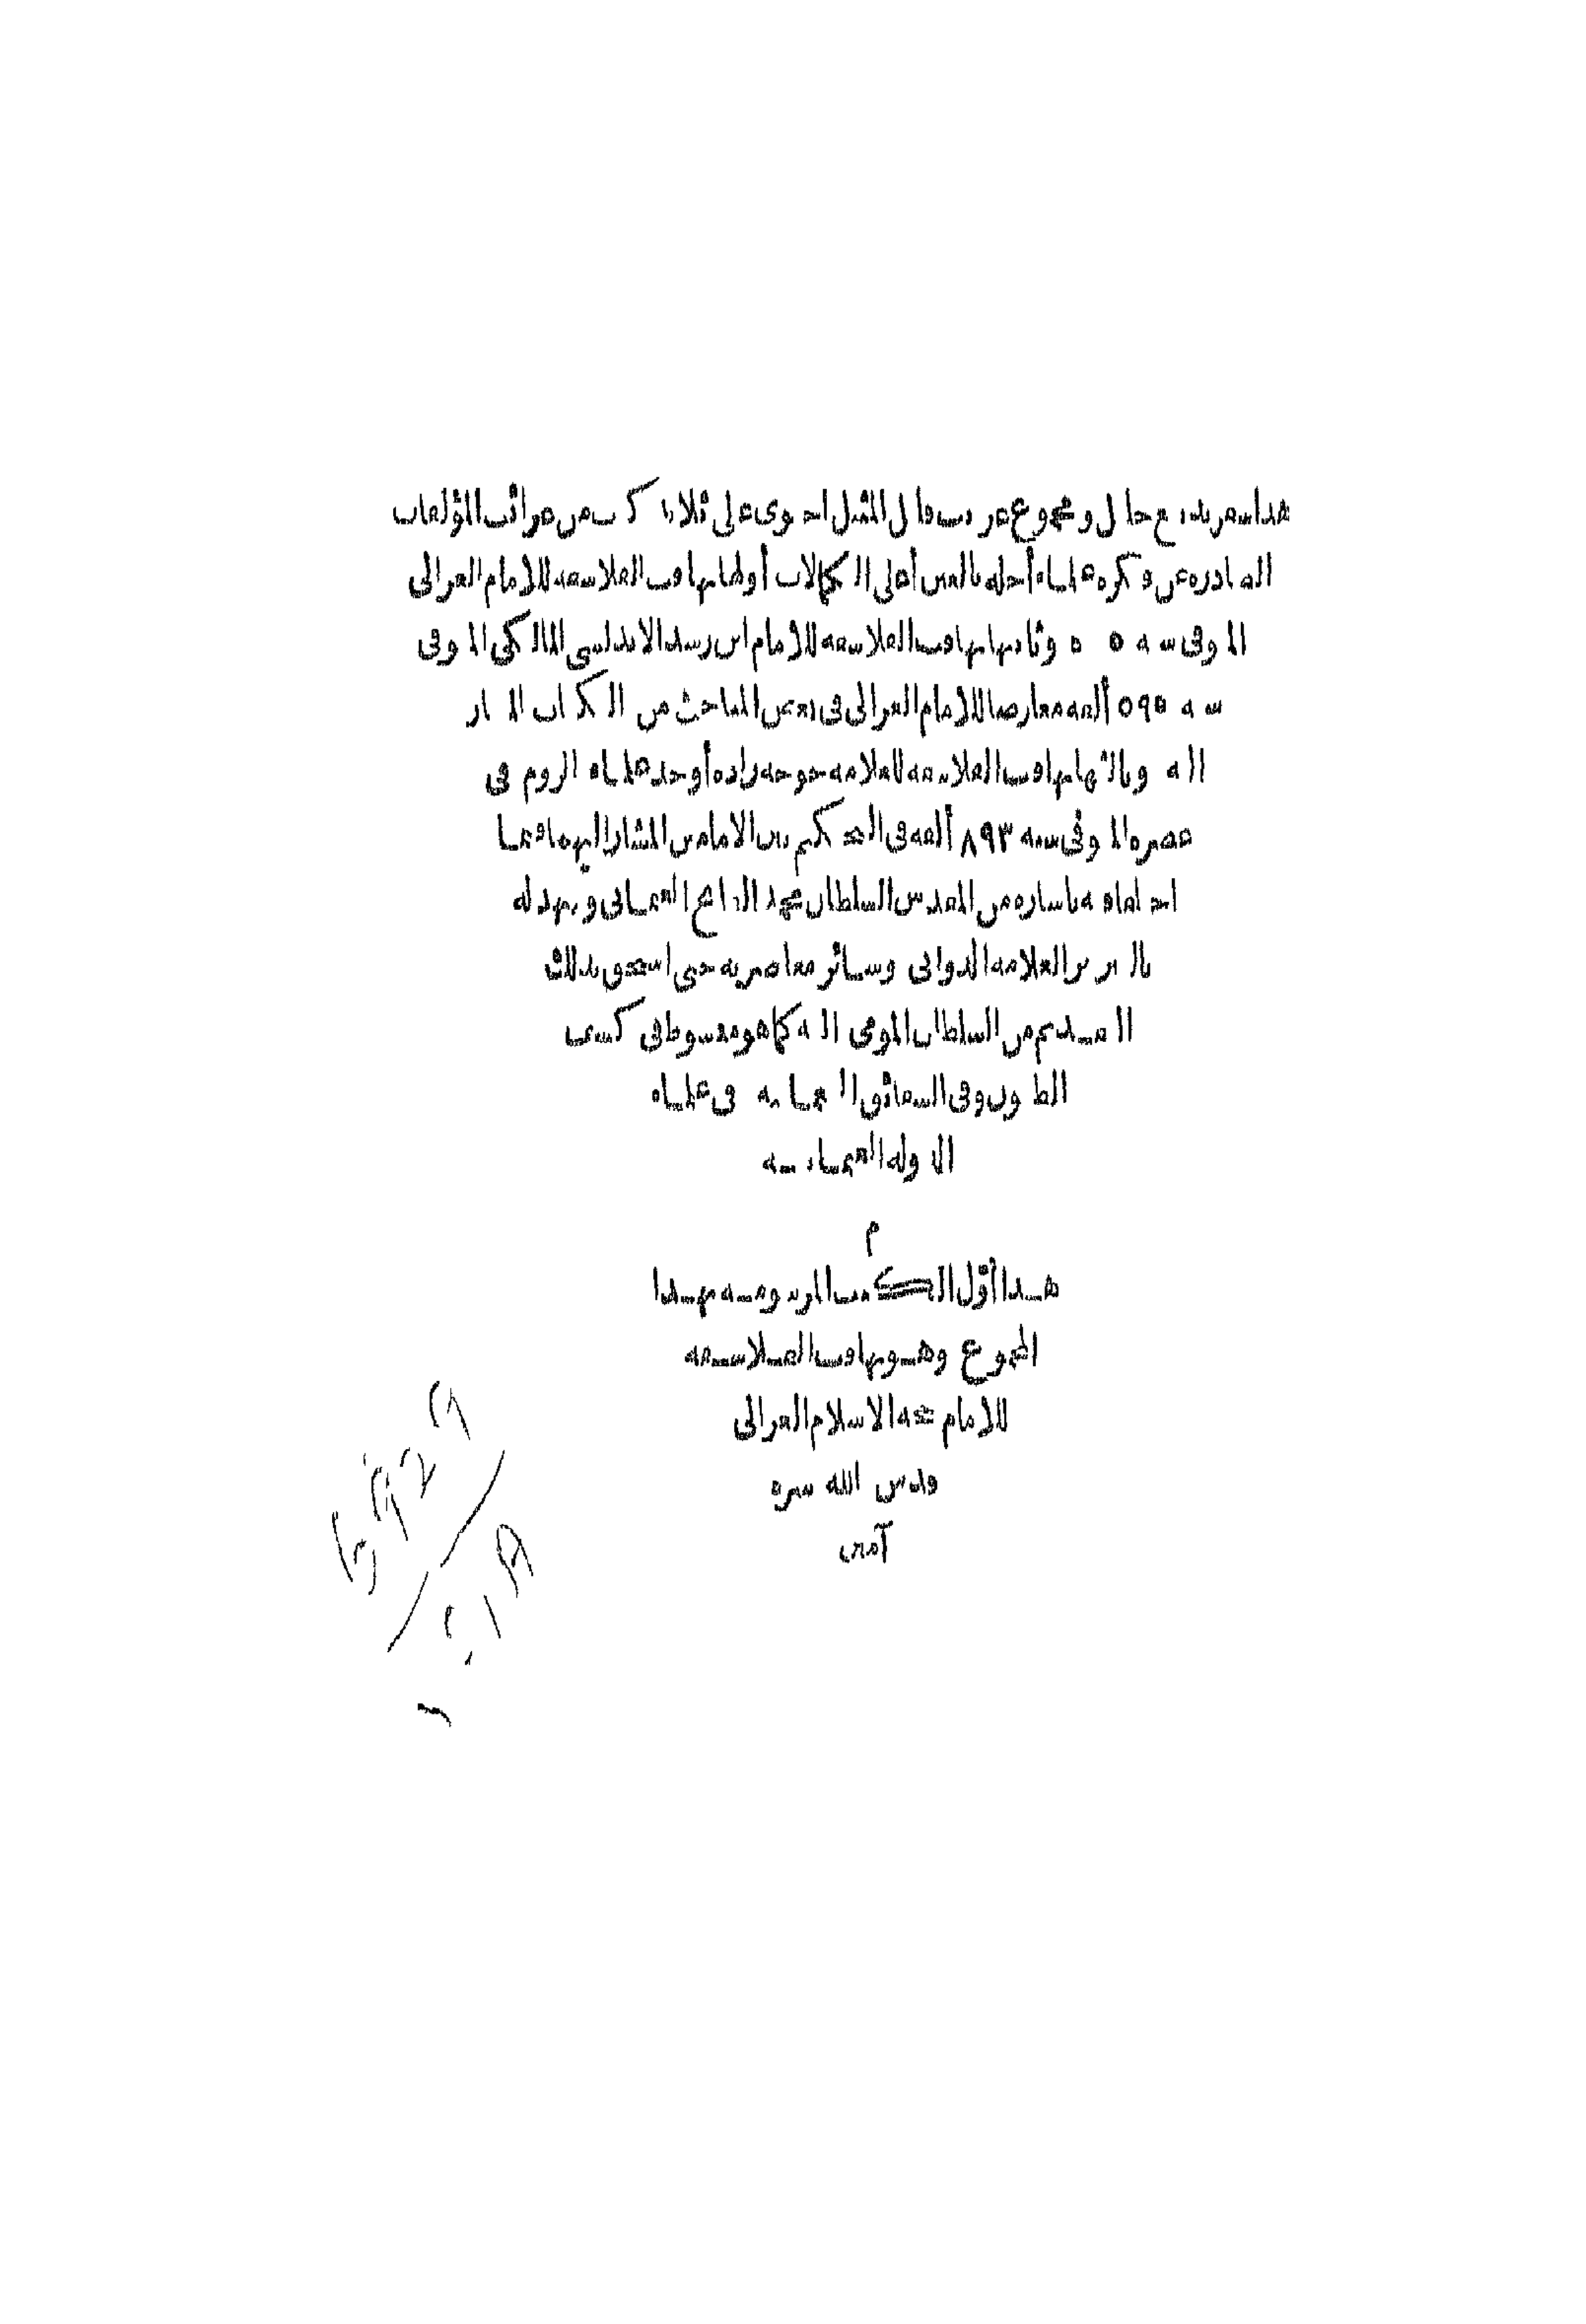 هذا سفر بديع جليل ومجموع غريب قليل المثيل احتوى على ثلاثة كتب من غرائب المؤلفات
الصادرة عن فكرة علماء أجلة بالغين أعلى الكمالات أولها تهافت الفلاسفة للامام الغزالى
المتوفى سنة ٥٠٥ وثانيها تهافت الفلاسفة للامام ابن رشد الاندلسى المالكى المتوفى
سنة ٥٩٥ ألفه معارضا للامام الغزالى فى بعض المباحث من الكتاب المشار
اليه وثالثها تهافت الفلاسفة للعلامة خوجه زاده أوحد علماء الروم فى
عصره المتوفى سنة ٨٩٣ ألفه فى التحكيم بين الامامين المشار اليهما فيما
اختلفا فيه باشارة من المقدس السلطان محمد الفاتح العثمانى وشهد له
بالتبريز العلامة الدوانى وسائر معاصريه حتى استحق بذلك
التقديم من السلطان المومى اليه كما هو مبسوط فى كشف
الظنون وفى الشقائق النعمانية فى علماء
الدولة العثمانية
م
هذا أول الكتب المرسومة بهذا
المجموع وهو تهافت الفلاسفة
للامام حجة الاسلام الغزالى
قدس الله سره
آمين